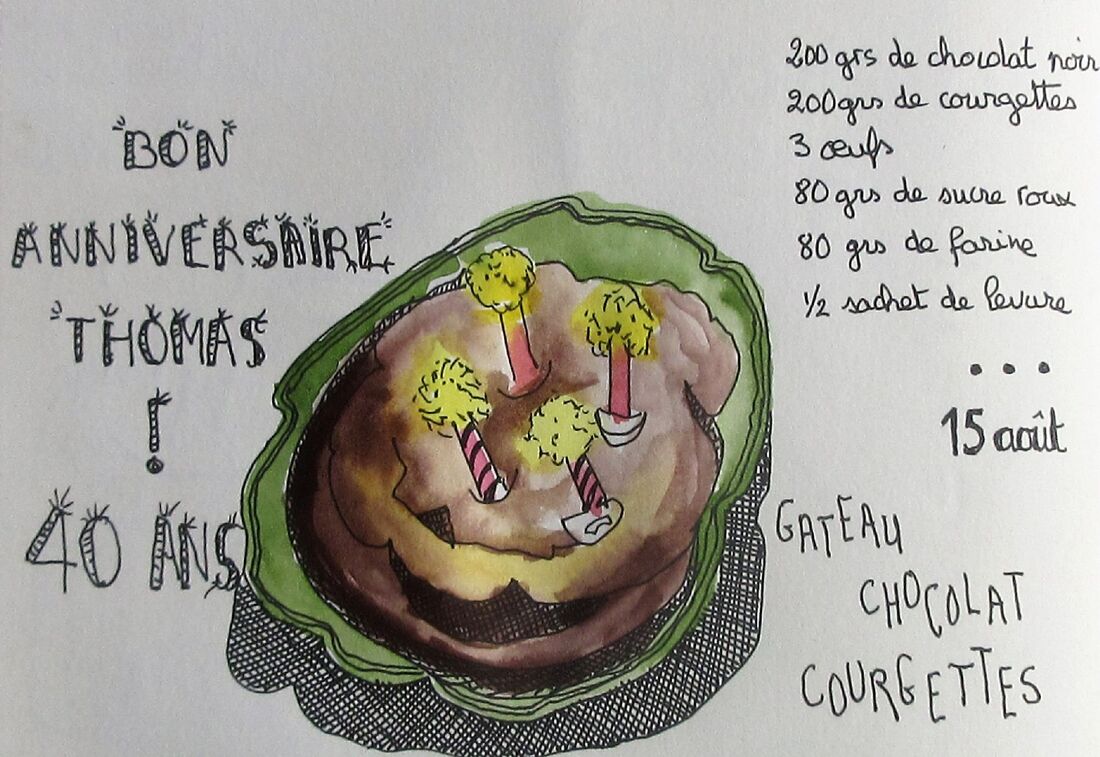 BON
ANNIVERSAIRE
THOMAS
!
40 ANS
200 grs de chocolat noir
200grs de courgettes
3 œufs
80 grs de sucre roux
80 grs de farine
1/2 sachet de levure
...
15 août
GATEAU
CHOCOLAT
COURGETTES